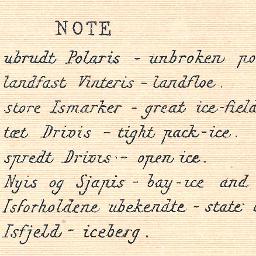 NOTE
ubrudt Polaris - unbroken po
landfast Vinteris - landfloe.
store Ismarker - great ice-field
tæt Drivis - tight pack-ice.
spredt Drivis - open ice.
Nyis og Sjapis - bay-ice and
Isforholdene ubekendte - state
Isfjeld - iceberg.